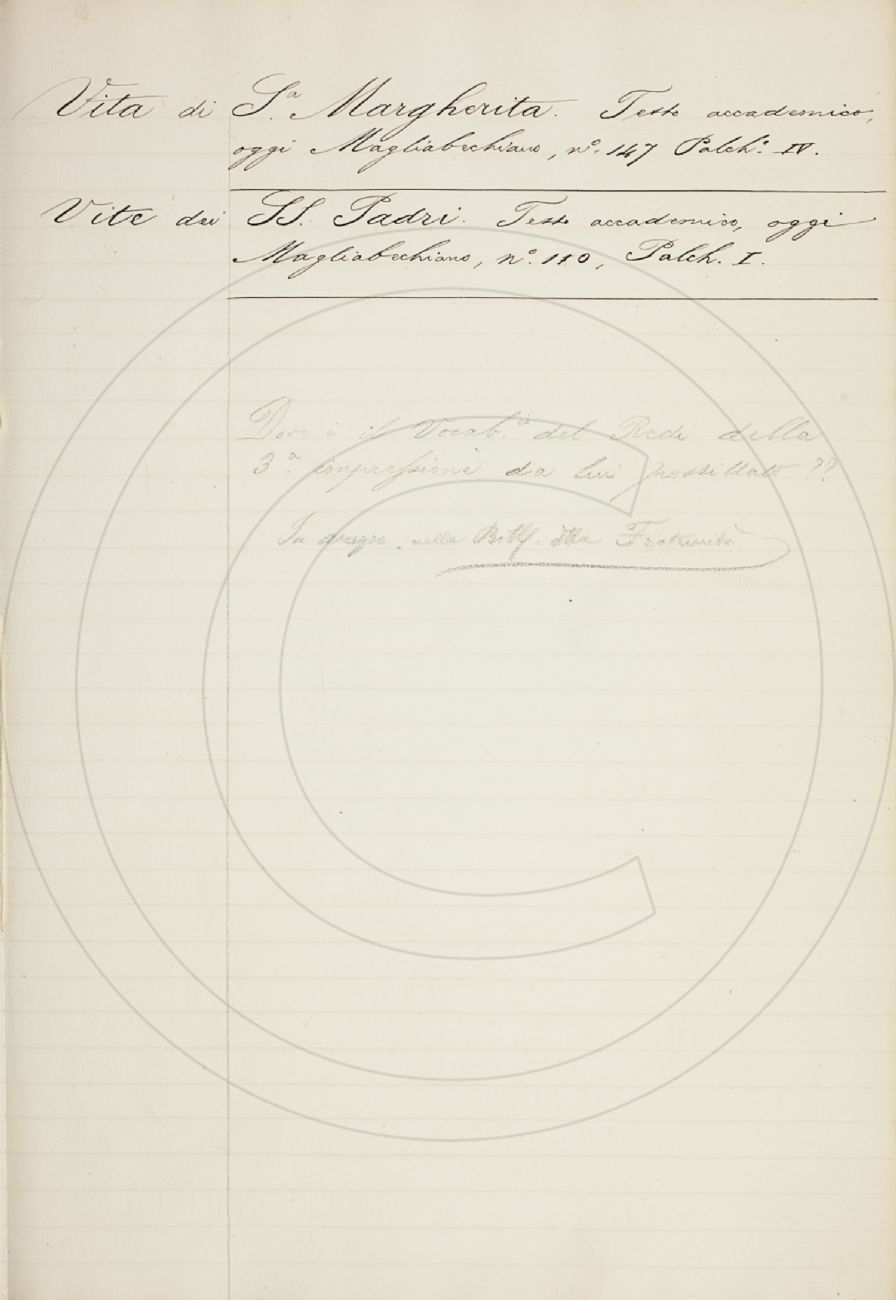 Vita di S.ª Margherita. Testo accademico,
oggi Magliabechiano, n.º 147 Palch.º IV.
Vite dei SS. Padri. Testo accademico, oggi
Magliabechiano, n.º 110, Palch. I.
Dove è il Vocab.io del Redi della
3ª. impressione da lui postillato ??
In nella della Fraternità